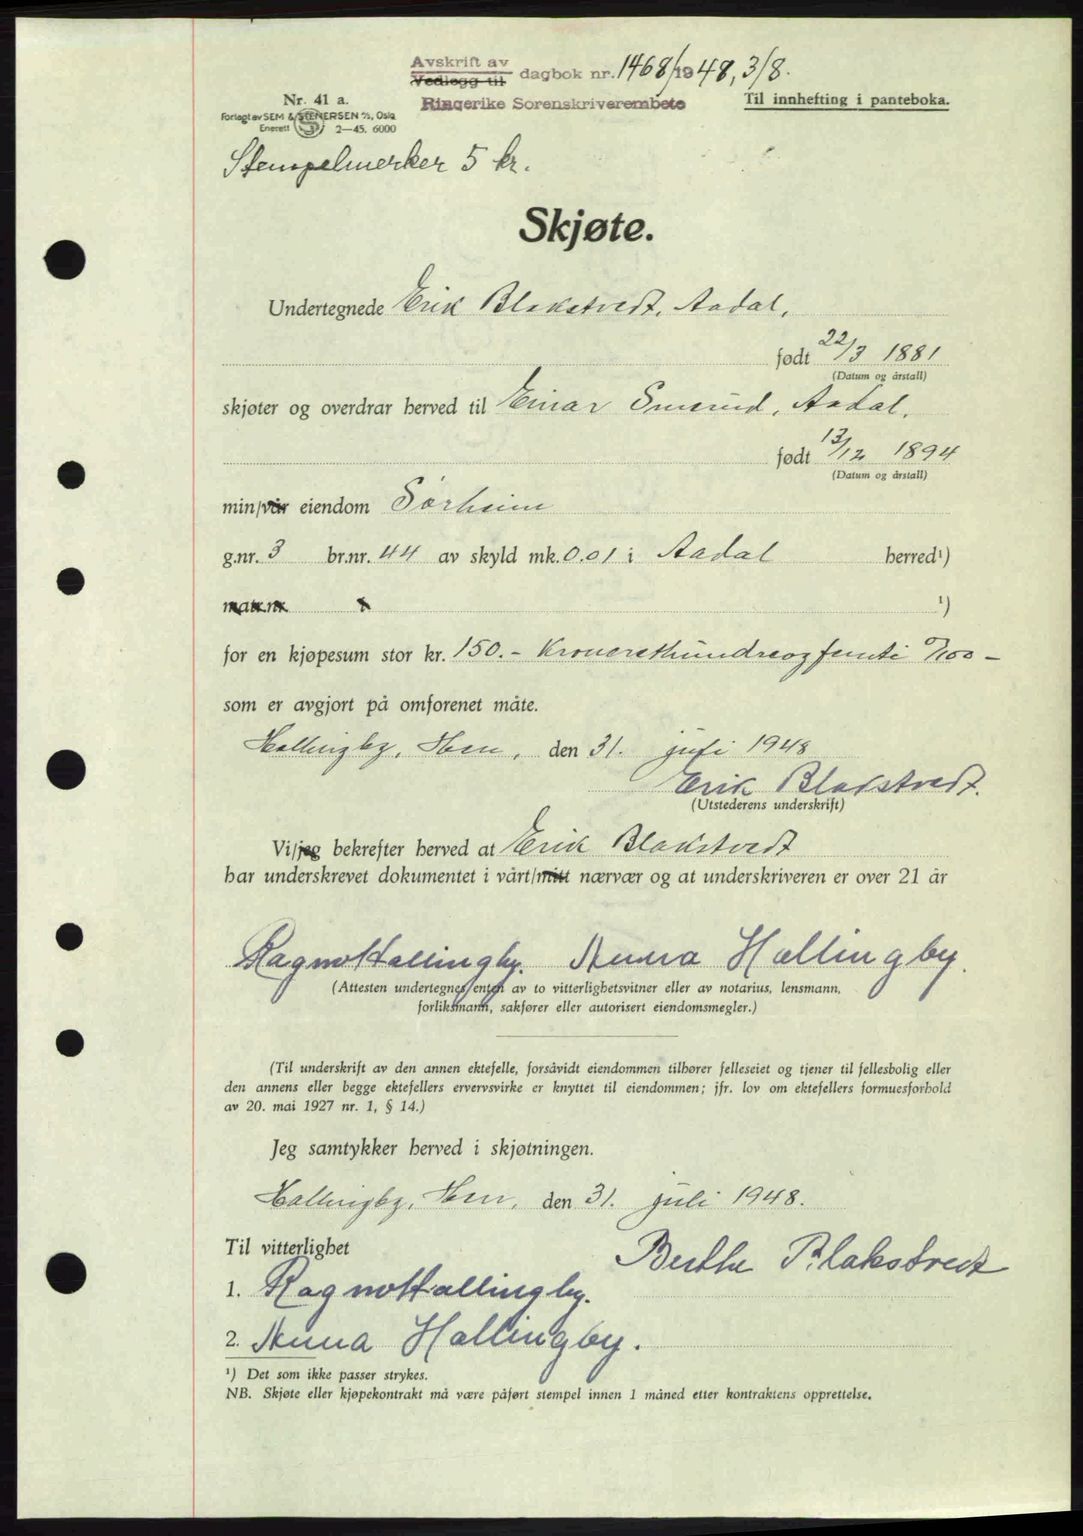 Avskrift av
Vedlegg til dagbok nr. 1468/1948, 3/8.
Ringerike Sorenskriverembete
Til innhefting i panteboka.
Nr. 41 a.
Forlagt av SEM & STENERSEN A/S, Oslo
Enerett S 2—45. 6000
Stempelmerker 5 kr.
Skjøte.
Undertegnede Erik Blakstvedt, Aadal,
født 22/3 1881
(Datum og årstall)
skjøter og overdrar herved til Einar Smerud, Aadal,
født 13/12 1894
(Datum og årstall)
min/vår eiendom Sørheim
g.nr. 3 br.nr. 44 av skyld mk. 0.01 i Aadal herred¹)
matr.nr. i ¹)
for en kjøpesum stor kr. 150.- Kroneretthundreogfemti 0/100 -
som er avgjort på omforenet måte.
Hallingby, Hen, den 31. juli 1948
Erik Blakstvedt.
(Utstederens underskrift)
Vi/jeg bekrefter herved at Erik Blakstvedt
har underskrevet dokumentet i vårt/mitt nærvær og at underskriveren er over 21 år
Ragnv Hallingby. Anna Hallingby.
(Attesten undertegnes enten av to vitterlighetsvitner eller av notarius, lensmann,
forliksmann, sakfører eller autorisert eiendomsmegler.)
(Til underskrift av den annen ektefelle, forsåvidt eiendommen tilhører felleseiet og tjener til fellesbolig eller
den annens eller begge ektefellers ervervsvirke er knyttet til eiendommen; jfr. lov om ektefellers formuesforhold
av 20. mai 1927 nr. 1, § 14.)
Jeg samtykker herved i skjøtningen.
Hallingby, Hen, den 31. juli 1948.
Til vitterlighet
Berthe Blakstvedt
1. Ragnv Hallingby.
2. Anna Hallingby.
¹) Det som ikke passer strykes.
NB. Skjøte eller kjøpekontrakt må være påført stempel innen 1 måned etter kontraktens opprettelse.